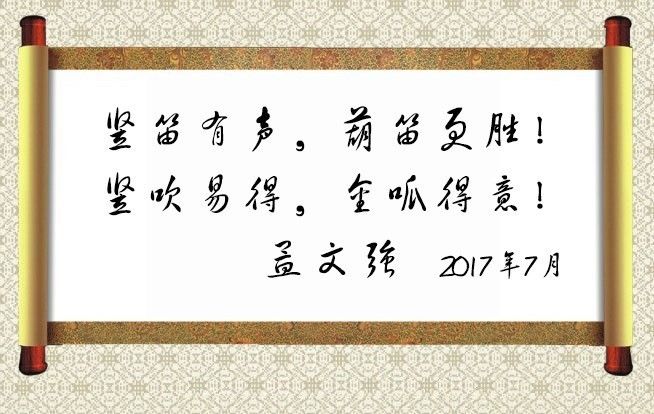 竖笛有声，葫笛更胜！
竖吹易得，金呱得意！
益文强 2017年7月